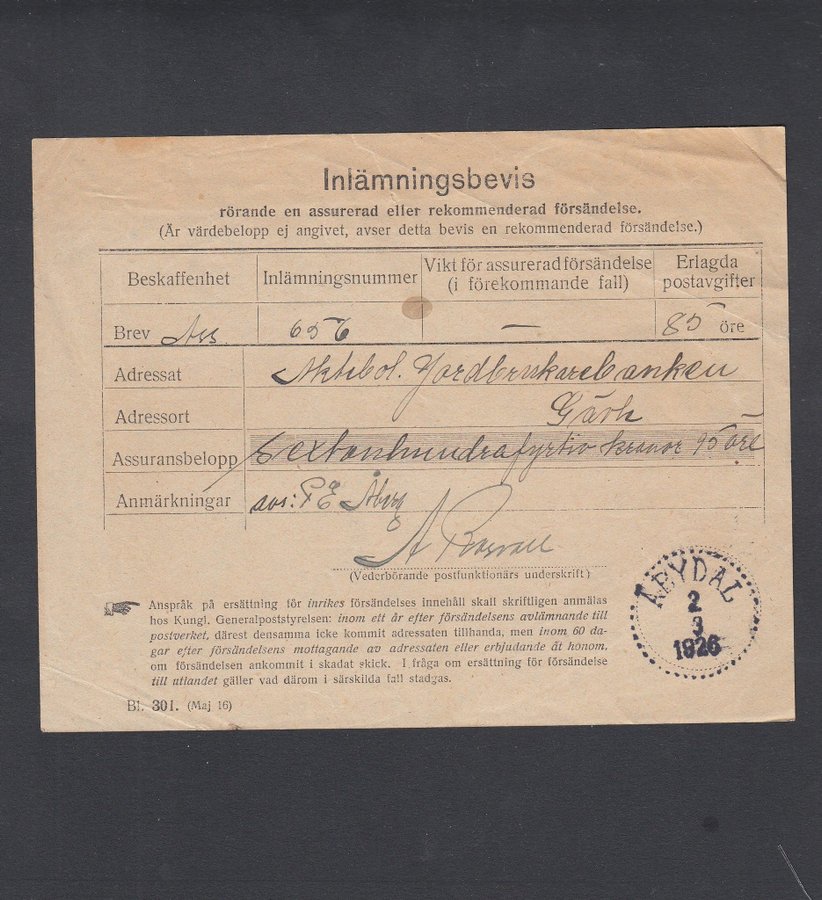 Inlämningsbevis
rörande en assurerad eller rekommenderad försändelse.
(Är värdebelopp ej angivet, avser detta bevis en rekommenderad försändelse.)
Beskaffenhet Inlämningsnummer Vikt för assurerad försändelse (i förekommande fall) Erlagda postavgifter
Brev Ass 656 — 85 öre
Adressat Aktiebol. Jordbrukarebanken
Adressort
Assuransbelopp Sextonhundrafyrtio kronor 95 öre
Anmärkningar avs: P E Åberg
A
(Vederbörande postfunktionärs underskrift)
Anspråk på ersättning för inrikes försändelses innehåll skall skriftligen anmälas
hos Kungl. Generalpoststyrelsen: inom ett år efter försändelsens avlämnande till
postverket, därest densamma icke kommit adressaten tillhanda, men inom 60 da-
gar efter försändelsens mottagande av adressaten eller erbjudande åt honom,
om försändelsen ankommit i skadat skick. I fråga om ersättning för försändelse
till utlandet gäller vad därom i särskilda fall stadgas.
Bl. 301. (Maj 16)
ÅBYDAL
2
3
1926